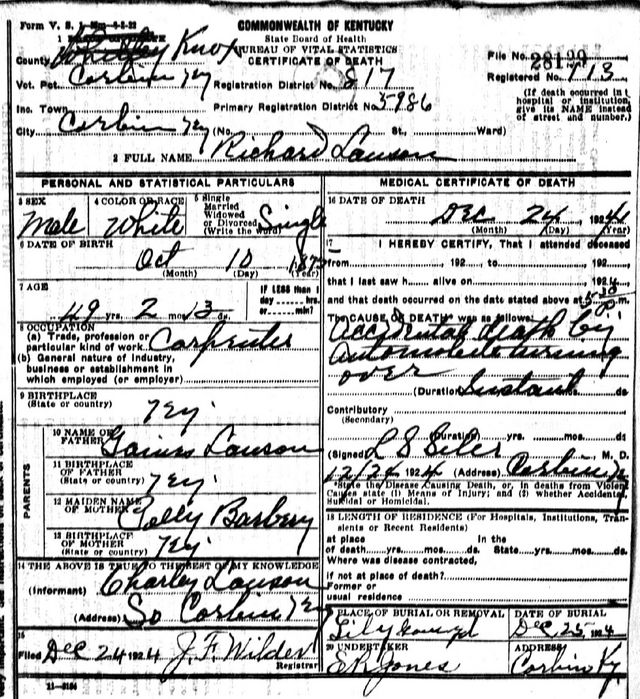 Form V. S.
COMMONWEALTH OF KENTUCKY
State Board of Health
BUREAU OF VITAL STATISTICS
CERTIFICATE OF DEATH
1
County Knox
File No. 28139
Registered No. 113
Vot. Pct. Corbin Ky Registration District No. 817
(If death occurred in hospital or institution, give its NAME instead of street and number.)
Inc. Town Primary Registration District No. 5986
City Corbin Ky (No. St., Ward)
2 FULL NAME Richard Lawson
PERSONAL AND STATISTICAL PARTICULARS
3 SEX Male
4 COLOR OR RACE White
5 Single Married Widowed or Divorced (Write the word) Single
6 DATE OF BIRTH
Oct 10
(Month) (Day) (Year)
7 AGE
49 yrs. 2 mos. 13 ds.
IF LESS than 1 day ...... hrs. or ...... min?
8 OCCUPATION
(a) Trade, profession or particular kind of work Carpenter
(b) General nature of industry, business or establishment in which employed (or employer)
9 BIRTHPLACE
(State or country) Ky
PARENTS
10 NAME OF FATHER Lawson
11 BIRTHPLACE OF FATHER
(State or country) Ky
12 MAIDEN NAME OF MOTHER Polly
13 BIRTHPLACE OF MOTHER
(State or country) Ky
14 THE ABOVE IS TRUE TO THE BEST OF MY KNOWLEDGE
(Informant) Charley Lawson
(Address) So Corbin Ky
15
Filed Dec 24 1924 J. F. Wilder
Registrar
11-3184
MEDICAL CERTIFICATE OF DEATH
16 DATE OF DEATH
Dec 24 1924
(Month) (Day) (Year)
17 I HEREBY CERTIFY, That I attended deceased
from 192 , to 192 ,
that I last saw h alive on 192 ,
and that death occurred on the date stated above at 5-30 P m.
The CAUSE OF DEATH* was as follows:
Accidental death by
automobile turning
over
(Duration) Instant ds
Contributory
(Secondary)
(Duration) yrs. mos. ds
(Signed) M. D.
12/24 1924 (Address) Corbin Ky
*State the Disease Causing Death, or, in deaths from Violent Causes state (1) Means of Injury; and (2) whether Accidental, Suicidal or Homicidal.
18 LENGTH OF RESIDENCE (For Hospitals, Institutions, Transients or Recent Residents)
at place of death yrs. mos. ds. In the State yrs. mos. ds.
Where was disease contracted,
if not at place of death?
Former or usual residence
19 PLACE OF BURIAL OR REMOVAL
DATE OF BURIAL
Dec 25 1924
20 UNDERTAKER
Jones
ADDRESS
Corbin Ky